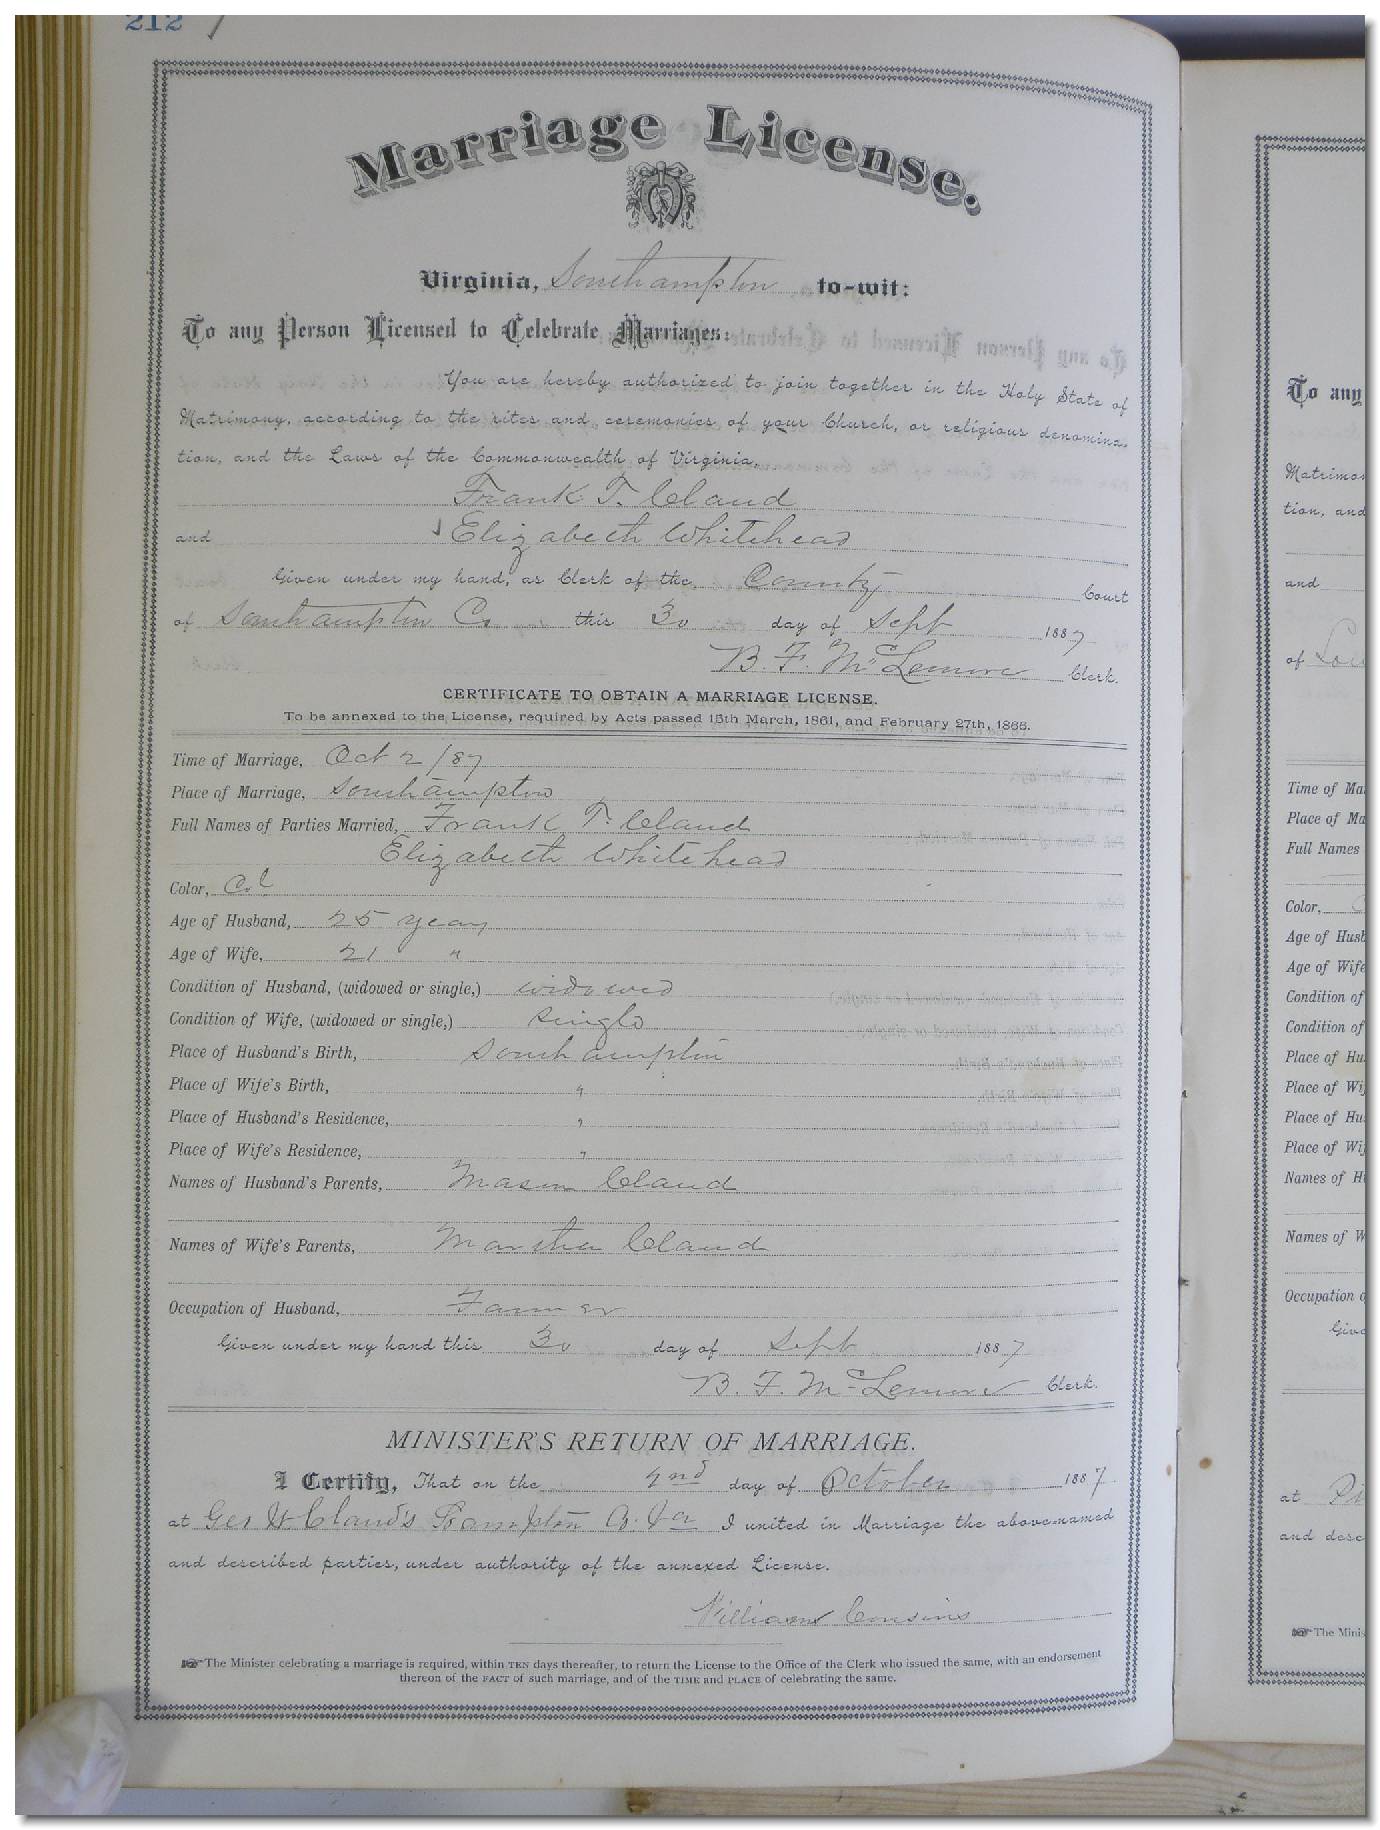 212
Marriage License.
Virginia, Southampton to-wit:
To any Person Licensed to Celebrate Marriages:
You are hereby authorized to join together in the Holy State of
Matrimony, according to the rites and ceremonies of your Church, or religious denomina-
tion, and the Laws of the Commonwealth of Virginia,
Frank T. Claud
and Elizabeth Whitehead
Given under my hand, as Clerk of the County Court
of Southampton Co this 30 day of Sept 1887
B. F. McLemore Clerk.
CERTIFICATE TO OBTAIN A MARRIAGE LICENSE.
To be annexed to the License, required by Acts passed 15th March, 1861, and February 27th, 1866.
Time of Marriage, Oct 2/87
Place of Marriage, Southampton
Full Names of Parties Married, Frank T. Claud
Elizabeth Whitehead
Color, Col
Age of Husband, 25 years
Age of Wife, 21 "
Condition of Husband, (widowed or single,) widowed
Condition of Wife, (widowed or single,) single
Place of Husband's Birth, Southampton
Place of Wife's Birth, "
Place of Husband's Residence, "
Place of Wife's Residence, "
Names of Husband's Parents, Mason Claud
Names of Wife's Parents, Martha Claud
Occupation of Husband, Farmer
Given under my hand this 30 day of Sept 1887
B. F. McLemore Clerk.
MINISTER'S RETURN OF MARRIAGE.
I Certify, That on the 2nd day of October 1887
at Geo W Claud's I united in Marriage the above-named
and described parties, under authority of the annexed License.
William Cousins
The Minister celebrating a marriage is required, within TEN days thereafter, to return the License to the Office of the Clerk who issued the same, with an endorsement
thereon of the FACT of such marriage, and of the TIME and PLACE of celebrating the same.
To any
Matrimo
tion, and
and
of
Time of Ma
Place of Ma
Full Names
Color,
Age of Husb
Age of Wife
Condition of
Condition of
Place of Hu
Place of Wi
Place of Hu
Place of Wi
Names of H
Names of W
Occupation o
Give
at
and desc
The Minis